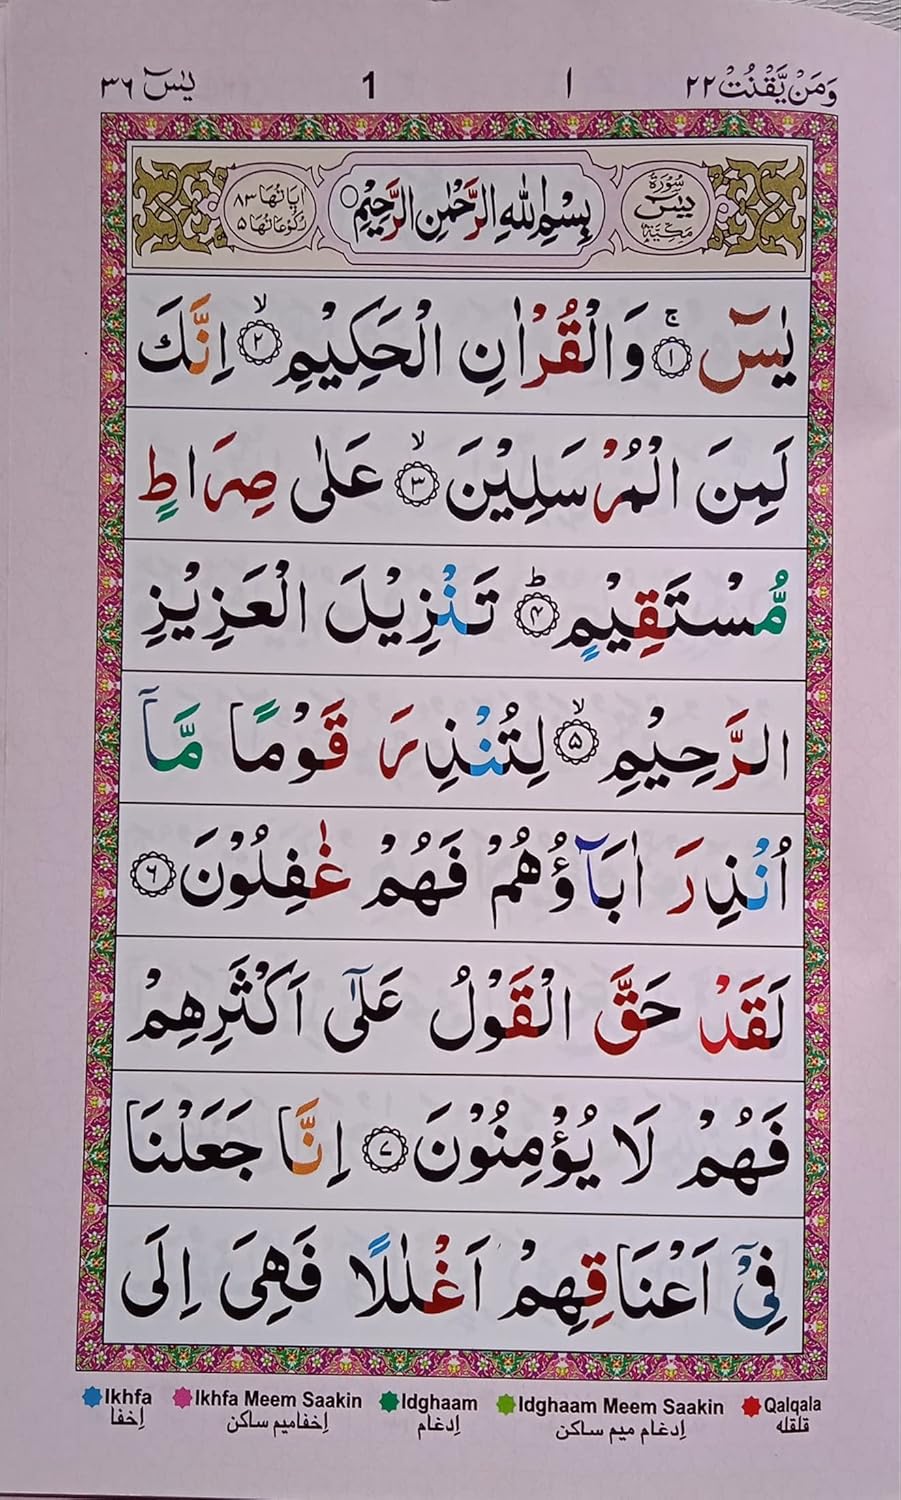 وَمَنْ يَّقْنُتْ ٢٢ ١ 1 يٰسٓ ٣٦
سُوْرَةُ يٰسٓ مَكِّيَّةٌ
بِسْمِ اللّٰهِ الرَّحْمٰنِ الرَّحِيْمِ
اٰيَاتُهَا ٨٣ رُكُوْعَاتُهَا ٥
يٰسٓ ۚ﴿١﴾ وَالْقُرْاٰنِ الْحَكِيْمِ ۙ﴿٢﴾ اِنَّكَ
لَمِنَ الْمُرْسَلِيْنَ ۙ﴿٣﴾ عَلٰى صِرَاطٍ
مُّسْتَقِيْمٍ ؕ﴿٤﴾ تَنْزِيْلَ الْعَزِيْزِ
الرَّحِيْمِ ۙ﴿٥﴾ لِتُنْذِرَ قَوْمًا مَّاۤ
اُنْذِرَ اٰبَآؤُهُمْ فَهُمْ غٰفِلُوْنَ ﴿٦﴾
لَقَدْ حَقَّ الْقَوْلُ عَلٰۤى اَكْثَرِهِمْ
فَهُمْ لَا يُؤْمِنُوْنَ ﴿٧﴾ اِنَّا جَعَلْنَا
فِىْۤ اَعْنَاقِهِمْ اَغْلٰلًا فَهِىَ اِلَى
Ikhfa Ikhfa Meem Saakin Idghaam Idghaam Meem Saakin Qalqala
اِخفا اِخفامیم ساکن اِدغام اِدغام میم ساکن قلقله